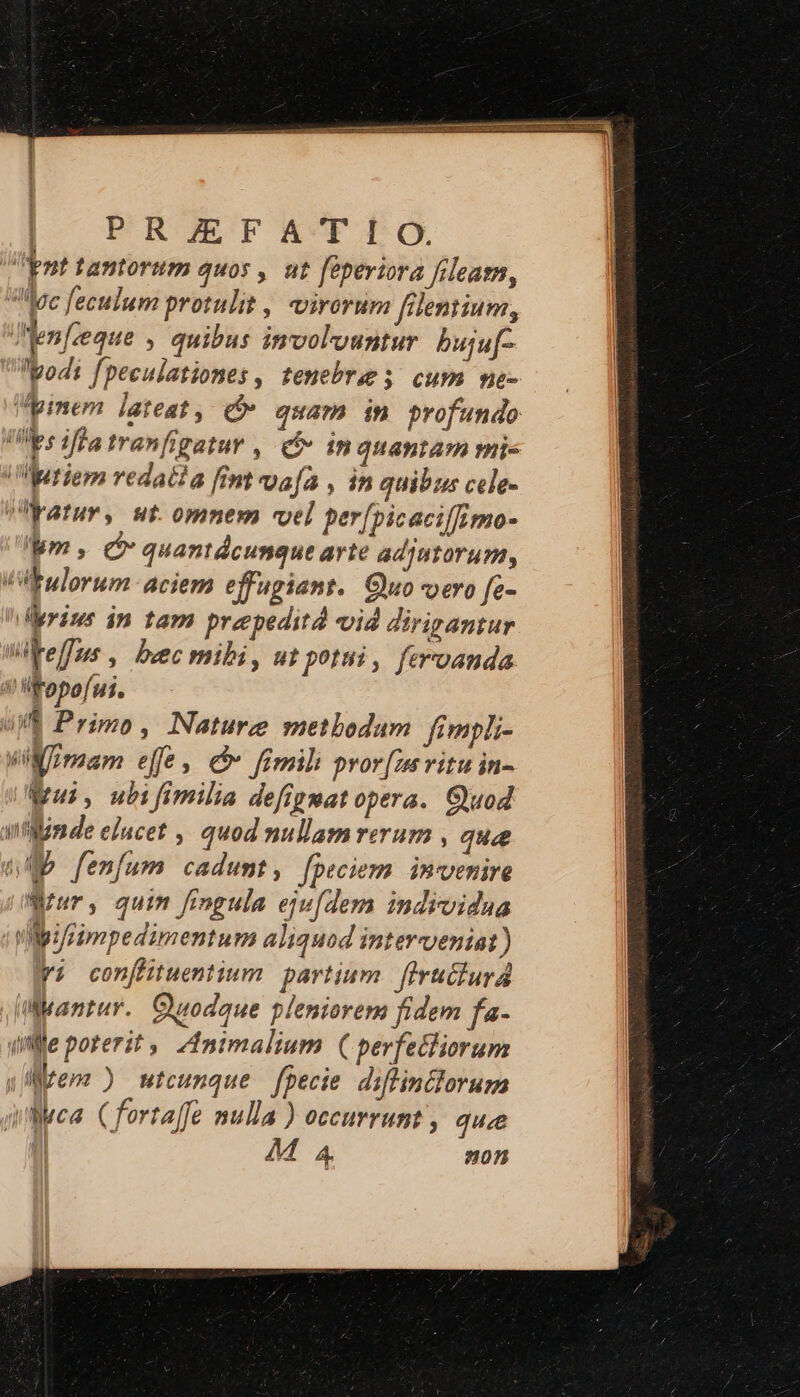 PRÆFATIO.
ent tantorum quos, ut ſeperiora ſileam,
hoc ſeculum protulit, virorum ſilentium,
denſæque, quibus involvuntur hujuſ-
modi ſpeculationes, tenebræ; cum ne-
minem lateat, & quam in profundo
res iſta tranſigatur, & in quantam mi-
nutiem redacta ſint vaſa, in quibus cele-
bratur, ut omnem vel perſpicaciſſimo-
rum, & quantâcunque arte adjutorum,
oculorum aciem effugiant. Quo vero ſe-
curius in tam præpeditâ viâ dirigantur
greſſus, hæc mihi, ut potui, ſervanda
propoſui.
Primo, Naturæ methodum ſimpli-
ciſſimam eſſe, & ſimili prorſus ritu in-
ſtitui, ubi ſimilia deſignat opera. Quod
inde elucet, quod nullam rerum, quæ
ſub ſenſum cadunt, ſpeciem invenire
detur, quin ſingula ejuſdem individua
(niſi impedimentum aliquod interveniat)
pari conſtituentium partium ſtructurâ
Quodque pleniorem fidem fa-
poterit, Animalium (perfectiorum
) utcunque ſpecie diſtinctorum
pauca (fortaſſe nulla) occurrunt, quæ
M 4 non